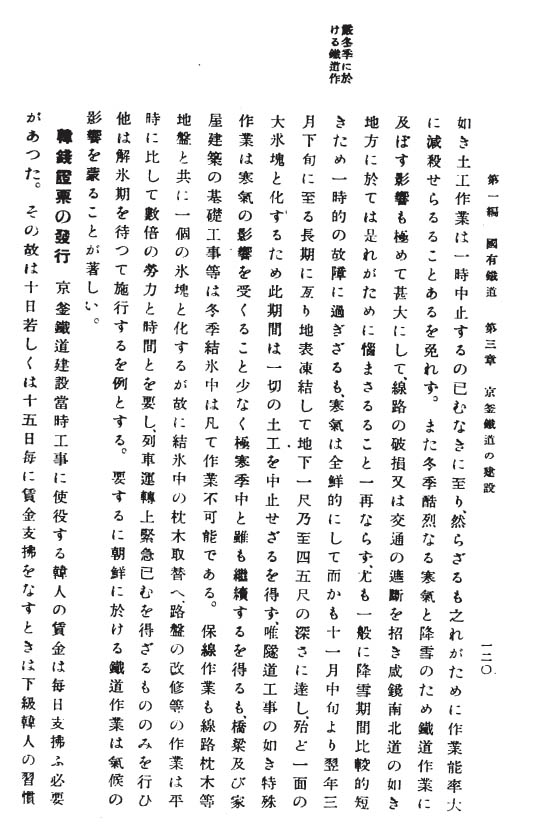 第一編　國有鐵道　第三章　京釜鐵道の建設
一二〇
嚴冬季に於
ける鐵道作
如き土工作業は一時中止するの已むなきに至り、然らざるも之れがために作業能率大
に減殺せらるることあるを免れず。また冬季酷烈なる寒氣と降雪のため鐵道作業に
及ぼす影響も極めて甚大にして、線路の破損又は交通の遮斷を招き咸鏡南北道の如き
地方に於ては是れがために惱まさるること一再ならず、尤も一般に降雪期間比較的短
きため一時的の故障に過ぎざるも、寒氣は全鮮的にして而かも十一月中旬より翌年三
月下旬に至る長期に亙り地表凍結して地下一尺乃至四五尺の深さに達し、殆ど一面の
大氷塊と化するため此期間は一切の土工を中止せざるを得ず、唯隧道工事の如き特殊
作業は寒氣の影響を受くること少なく極寒季中と雖も繼續するを得るも、橋梁及び家
屋建築の基礎工事等は冬季結氷中は凡て作業不可能である。保線作業も線路枕木等
地盤と共に一個の氷塊と化するが故に結氷中の枕木取替へ、路盤の改修等の作業は平
時に比して數倍の勞力と時間とを要し、列車運轉上緊急已むを得ざるもののみを行ひ
他は解氷期を待つて施行するを例とする。要するに朝鮮に於ける鐵道作業は氣候の
影響を蒙ることが著しい。
韓錢證票の發行　京釜鐵道建設當時工事に使役する韓人の賃金は毎日支拂ふ必要
があつた。その故は十日若しくは十五日毎に賃金支拂をなすときは下級韓人の習慣